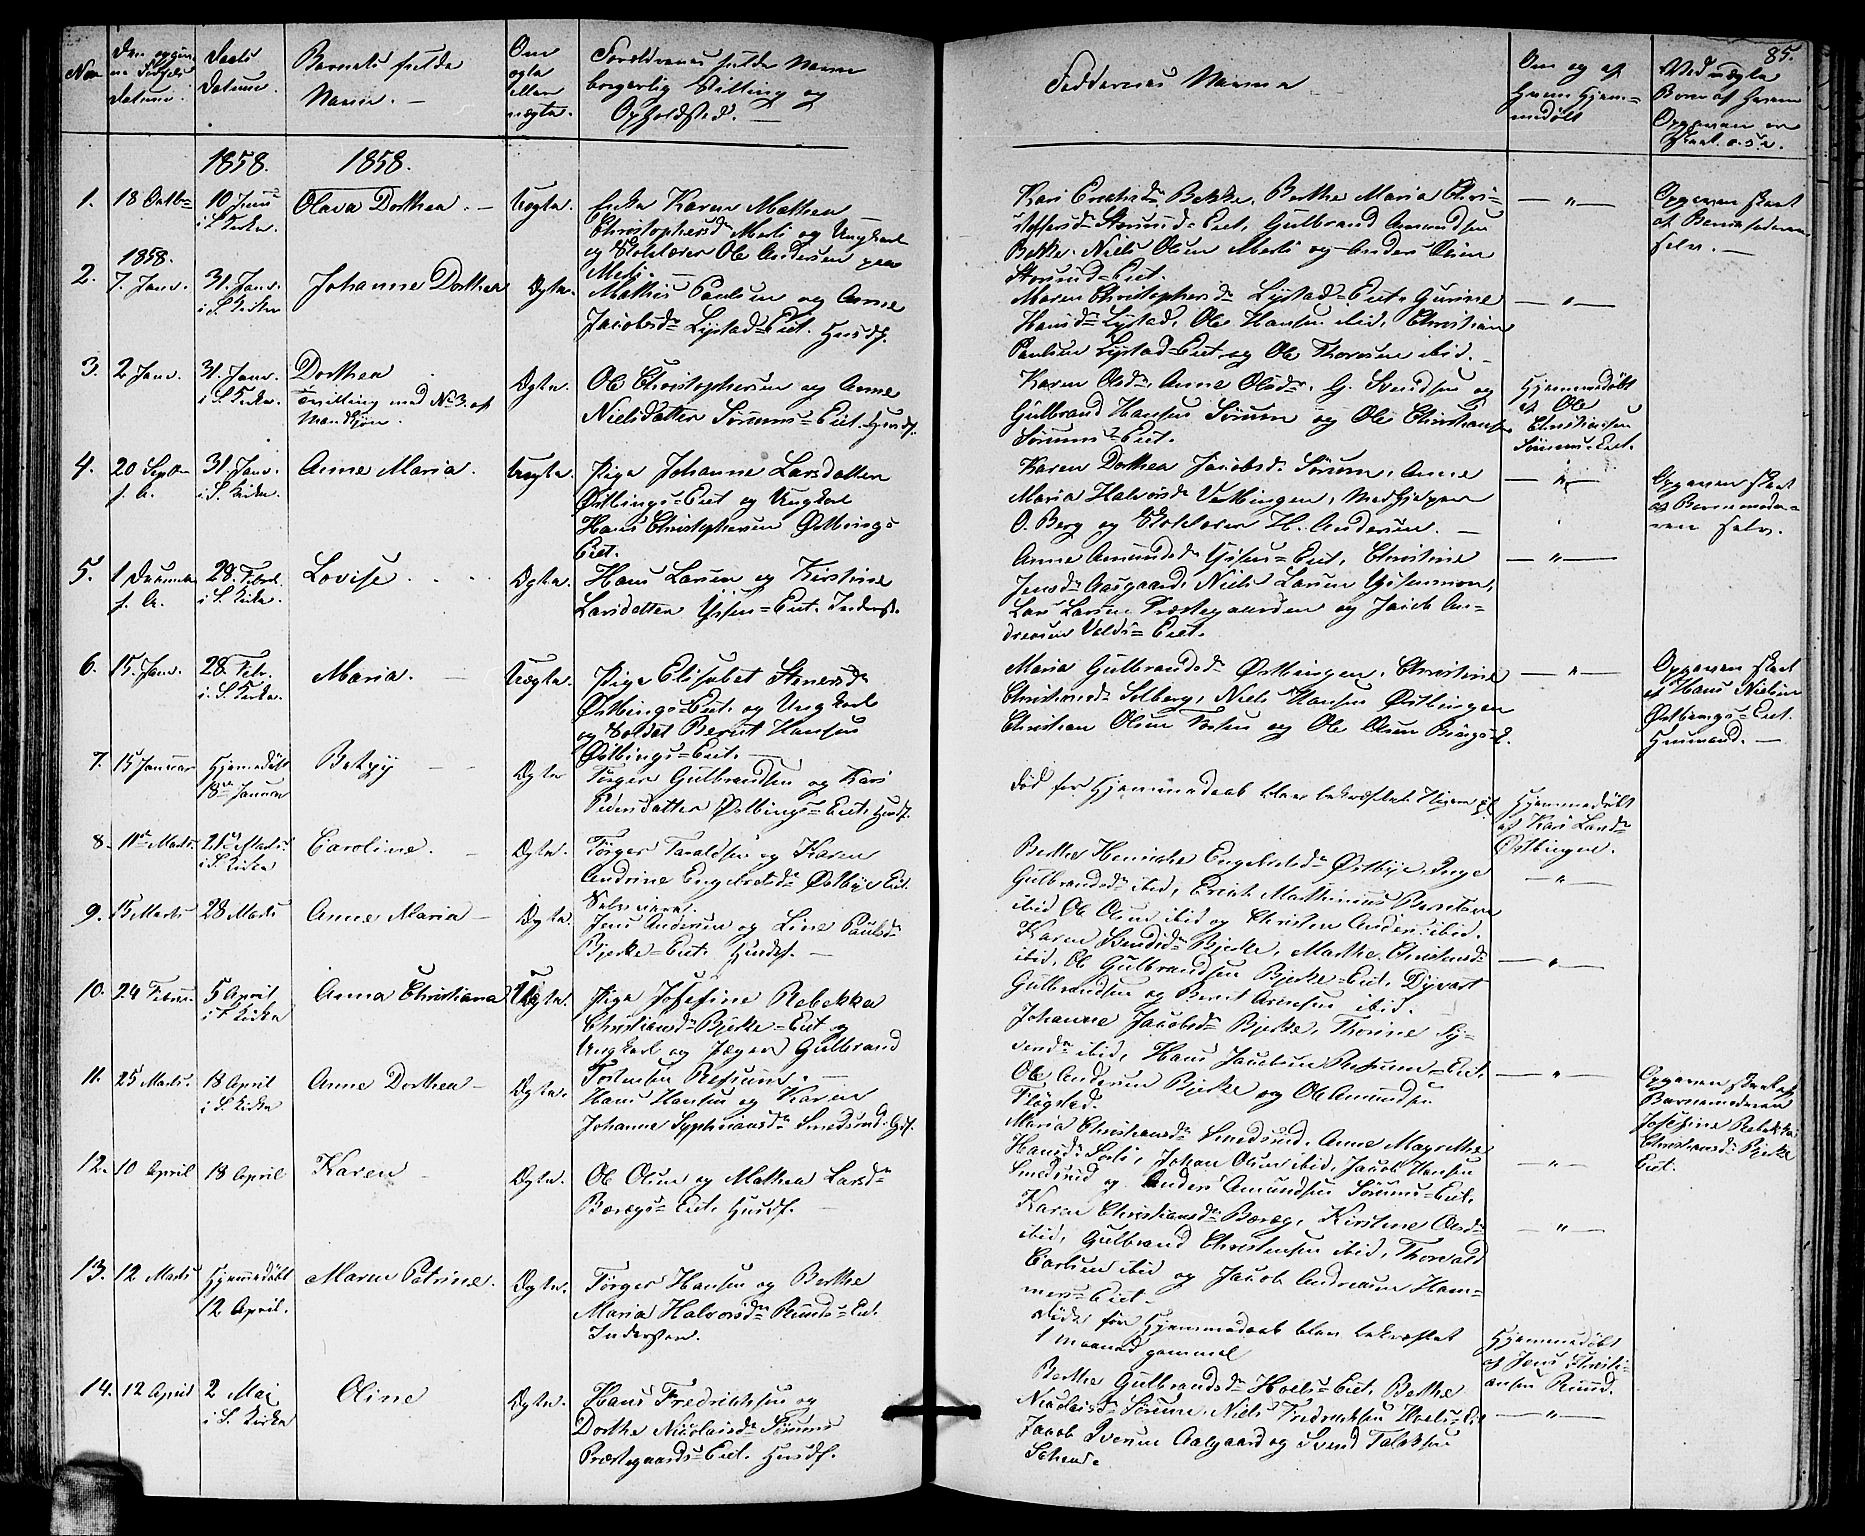 85.
No
Datum.
Daabs
Datum.
Barnets fulde
Navn. —
Om
ægte
eller
uægte.
Forældrenes fulde Navne
borgerlig Stilling og
Opholdsted. —
Faddernes Navne
Om og af
Hvem Hjem=
medøbt
Ved uægte
Børn af Hvem
Opgaven er
skeet o.s.v.
1858. 1858.
1. 18 Octb= 10 Janu Olava Dorthea. — Uægte. Enke Karen Mathea
Christophersdr Meli og Ungkarl
og Ole Andersen paa
Meli.
Bekke, Berthe Maria Chri=
Eiet, Gulbrand Amundsen
Bekke, Niels Olsen Meli og Anders Olsen
Eiet.
— „ —
Opgaven skeet
af Barnefaderen
selv. —
1858.
2. 7. Janv. 31. Janv. i S. Kirke Johanne Dorthea Ægte. Mathis Paulsen og Anne
Jacobsdr Lystad=Eiet. Husdf.
Maren Christophersdr Lystad=Eiet, Gurine
Hansdr Lystad, Ole Hansen ibid, Christian
Paulsen Lystad=Eiet og Ole Thoresen ibid. —
— „ —
3. 2 Janv. 31. Janv. i S. Kirke. Dorthea
tvilling med No 3. af
Mandkjøn.
Ægte. Ole Christophersen og Anne
Nielsdatter Sørums=Eiet. Husdf.
Karen Olsdr, Anne Olsdr, G. Svendsen og
Gulbrand Hansen Sørum og Ole Christians.
Sørums=Eiet.
Hjemmedøbt
af Ole
Christiansen
Sørums=Eiet.
4. 20 Septbr f. A. 31. Janv. i S. Kirke. Anne Maria. Uægte. Pige Johanne Larsdatter
Østbings=Eiet og Ungkarl
Hans Christophersen Østbings
Eiet.
Karen Dorthea Jacobsdr Sørum, Anne
Maria Halvorsdr Medhjelper
O. Berg og H. Andersen. —
— „ —
Opgaven skeet
af Barnemode=
ren selv.
5. 1 December f. A. 28. Febr. i S. Kirke. Lovise. Ægte. Hans Larsen og Kirstine
Larsdatter Eiet. Inderst.
Anne Amundsdr Eiet, Christine
Jensdr Aasgaard, Niels Larsen
Lars Larsen Præstegaarden og Jacob An=
dreasen Eiet.
— „ —
6. 15. Janv. 28. Febr. i. S. Kirke. Maria. — Uægte. Pige Elisabet Steneresdr
Østbings=Eiet og Ungkarl
og Soldat Bernt Hansen
Østbings=Eiet. —
Maria Gulbrandsdr Østbingen, Christine
Christiansdr Solberg, Niels Hansen Østbingen
Christian Olsen og Ole Olsen
— „ —
Opgaven skeet
af Hans Nielsen
Østbings=Eiet.
Huusmand. —
7. 15 Januar Hjemmedøbt 18de Januar Betzy — Ægte Torger Gulbrandsen og Kari
Pedersdatter Østbings=Eiet, Husdf.
død før Hjemmedaab blev bekræftet
Hjemmedøbt
af Kari Larsdr
Østbingen.
8. 11te Marts. 21de Marts. i S. Kirke Caroline. — Ægte. Torger Taraldsen og Karen
Andrine Engebretsdr Østbye Eiet.
Selveiere.
Berthe Henrikke Engebretsdr Østbye, Inge
Gulbrandsdr ibid, Erich Mathinius Berntsen
ibid Ole Olsen ibid og Christen Anders. ibid.
— „ —
9. 15 Marts 28 Marts Anne Maria — Ægte. Jens Andersen og Line Paulsdr
Bjerke=Eiet. Husdf. —
Karen Svendsdr Bjerke, Marthe Christensdr
ibid, Ole Gulbrandsen Bjerke=Eiet, Dyvart
Gulbrandsen og Bernt Arnesen ibid.
— „ —
10. 24 Februar 5 April Kirke Anna Christiana Uægte. Pige Josefine Rebekka
Christiansdr Bjerke=Eiet og
Ungkarl og Jæger Gulbrand
Torstensen
Johanne Jacobsdr Bjerke, Thorine
ibid, Hans Jacobsen Eiet
Ole Andersen Bjerke og Ole Amundsen
— „ —
Opgaven skeet af
Barnemoderen
Josefine Rebekka
Christiansdr Bjerke
Eiet.
11. 25 Marts. 18 April i S. Kirke Anne Dorthea — Ægte. Hans Hansen og Karen
Johanne Smedsrud
Maria Christiansdr Smedsrud, Anne Magrethe
Hansdr Johan Olsen ibid, Jacob Hansen
Smedsrud og Anders Amundsen Sørums=Eiet.
— „ —
12. 10 April 18 April Karen — Ægte. Ole Olsen og Mathea Larsdr
Eiet, Husdf. —
Karen Christiansdr Kirstine Olsdr
ibid, Gulbrand Christensen ibid, Thorvald
Carlsen ibid og Jacob Andreasen Ham=
mers=Eiet.
— „ —
13. 12 Marts Hjemmedøbt 12 April. Maren Petrine. Ægte. Torger Hansen og Berthe
Maria Halvorsdr Eiet.
Inderster.
døde før Hjemmedaab blev bekræftet
1 maaned gammel
Hjemmedøbt
af Jens Christi=
ansen
14. 12 April 2 Mai i S. Kirke Oline Ægte. Hans Fredriksen og
Dorthe Nicolaisdr Sørums
Præstegaards=Eiet. Husdf.
Berthe Gulbrandsdr Eiet, Berthe
Nicolaisdr Sørum, Niels Fredriksen
Jacob Iversen Aalgaard og Svend
— „ —